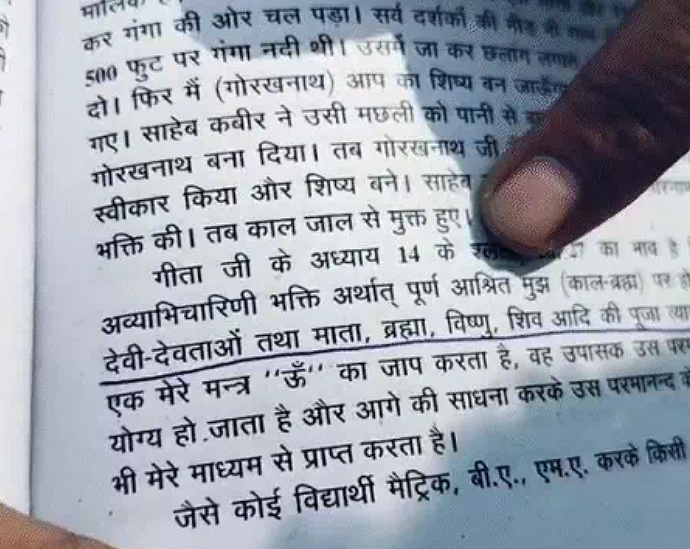 मालिक
कर गंगा की ओर चल पड़ा। सर्व दर्शकों की
500 फुट पर गंगा नदी थी। उसमें जा कर छलांग लगाते
दो। फिर मैं (गोरखनाथ) आप का शिष्य बन जाऊँगा
गए। साहेब कबीर ने उसी मछली को पानी से
गोरखनाथ बना दिया। तब गोरखनाथ जी
स्वीकार किया और शिष्य बने। साहेब
भक्ति की। तब काल जाल से मुक्त हुए।
गीता जी के अध्याय 14 के का भाव है
अव्याभिचारिणी भक्ति अर्थात् पूर्ण आश्रित मुझ (काल-ब्रह्म) पर हो
देवी-देवताओं तथा माता, ब्रह्मा, विष्णु, शिव आदि की पूजा त्या
एक मेरे मन्त्र "ऊँ" का जाप करता है, वह उपासक उस पर
योग्य हो जाता है और आगे की साधना करके उस परमानन्द
भी मेरे माध्यम से प्राप्त करता है।
जैसे कोई विद्यार्थी मैट्रिक, बी.ए., एम.ए. करके किसी